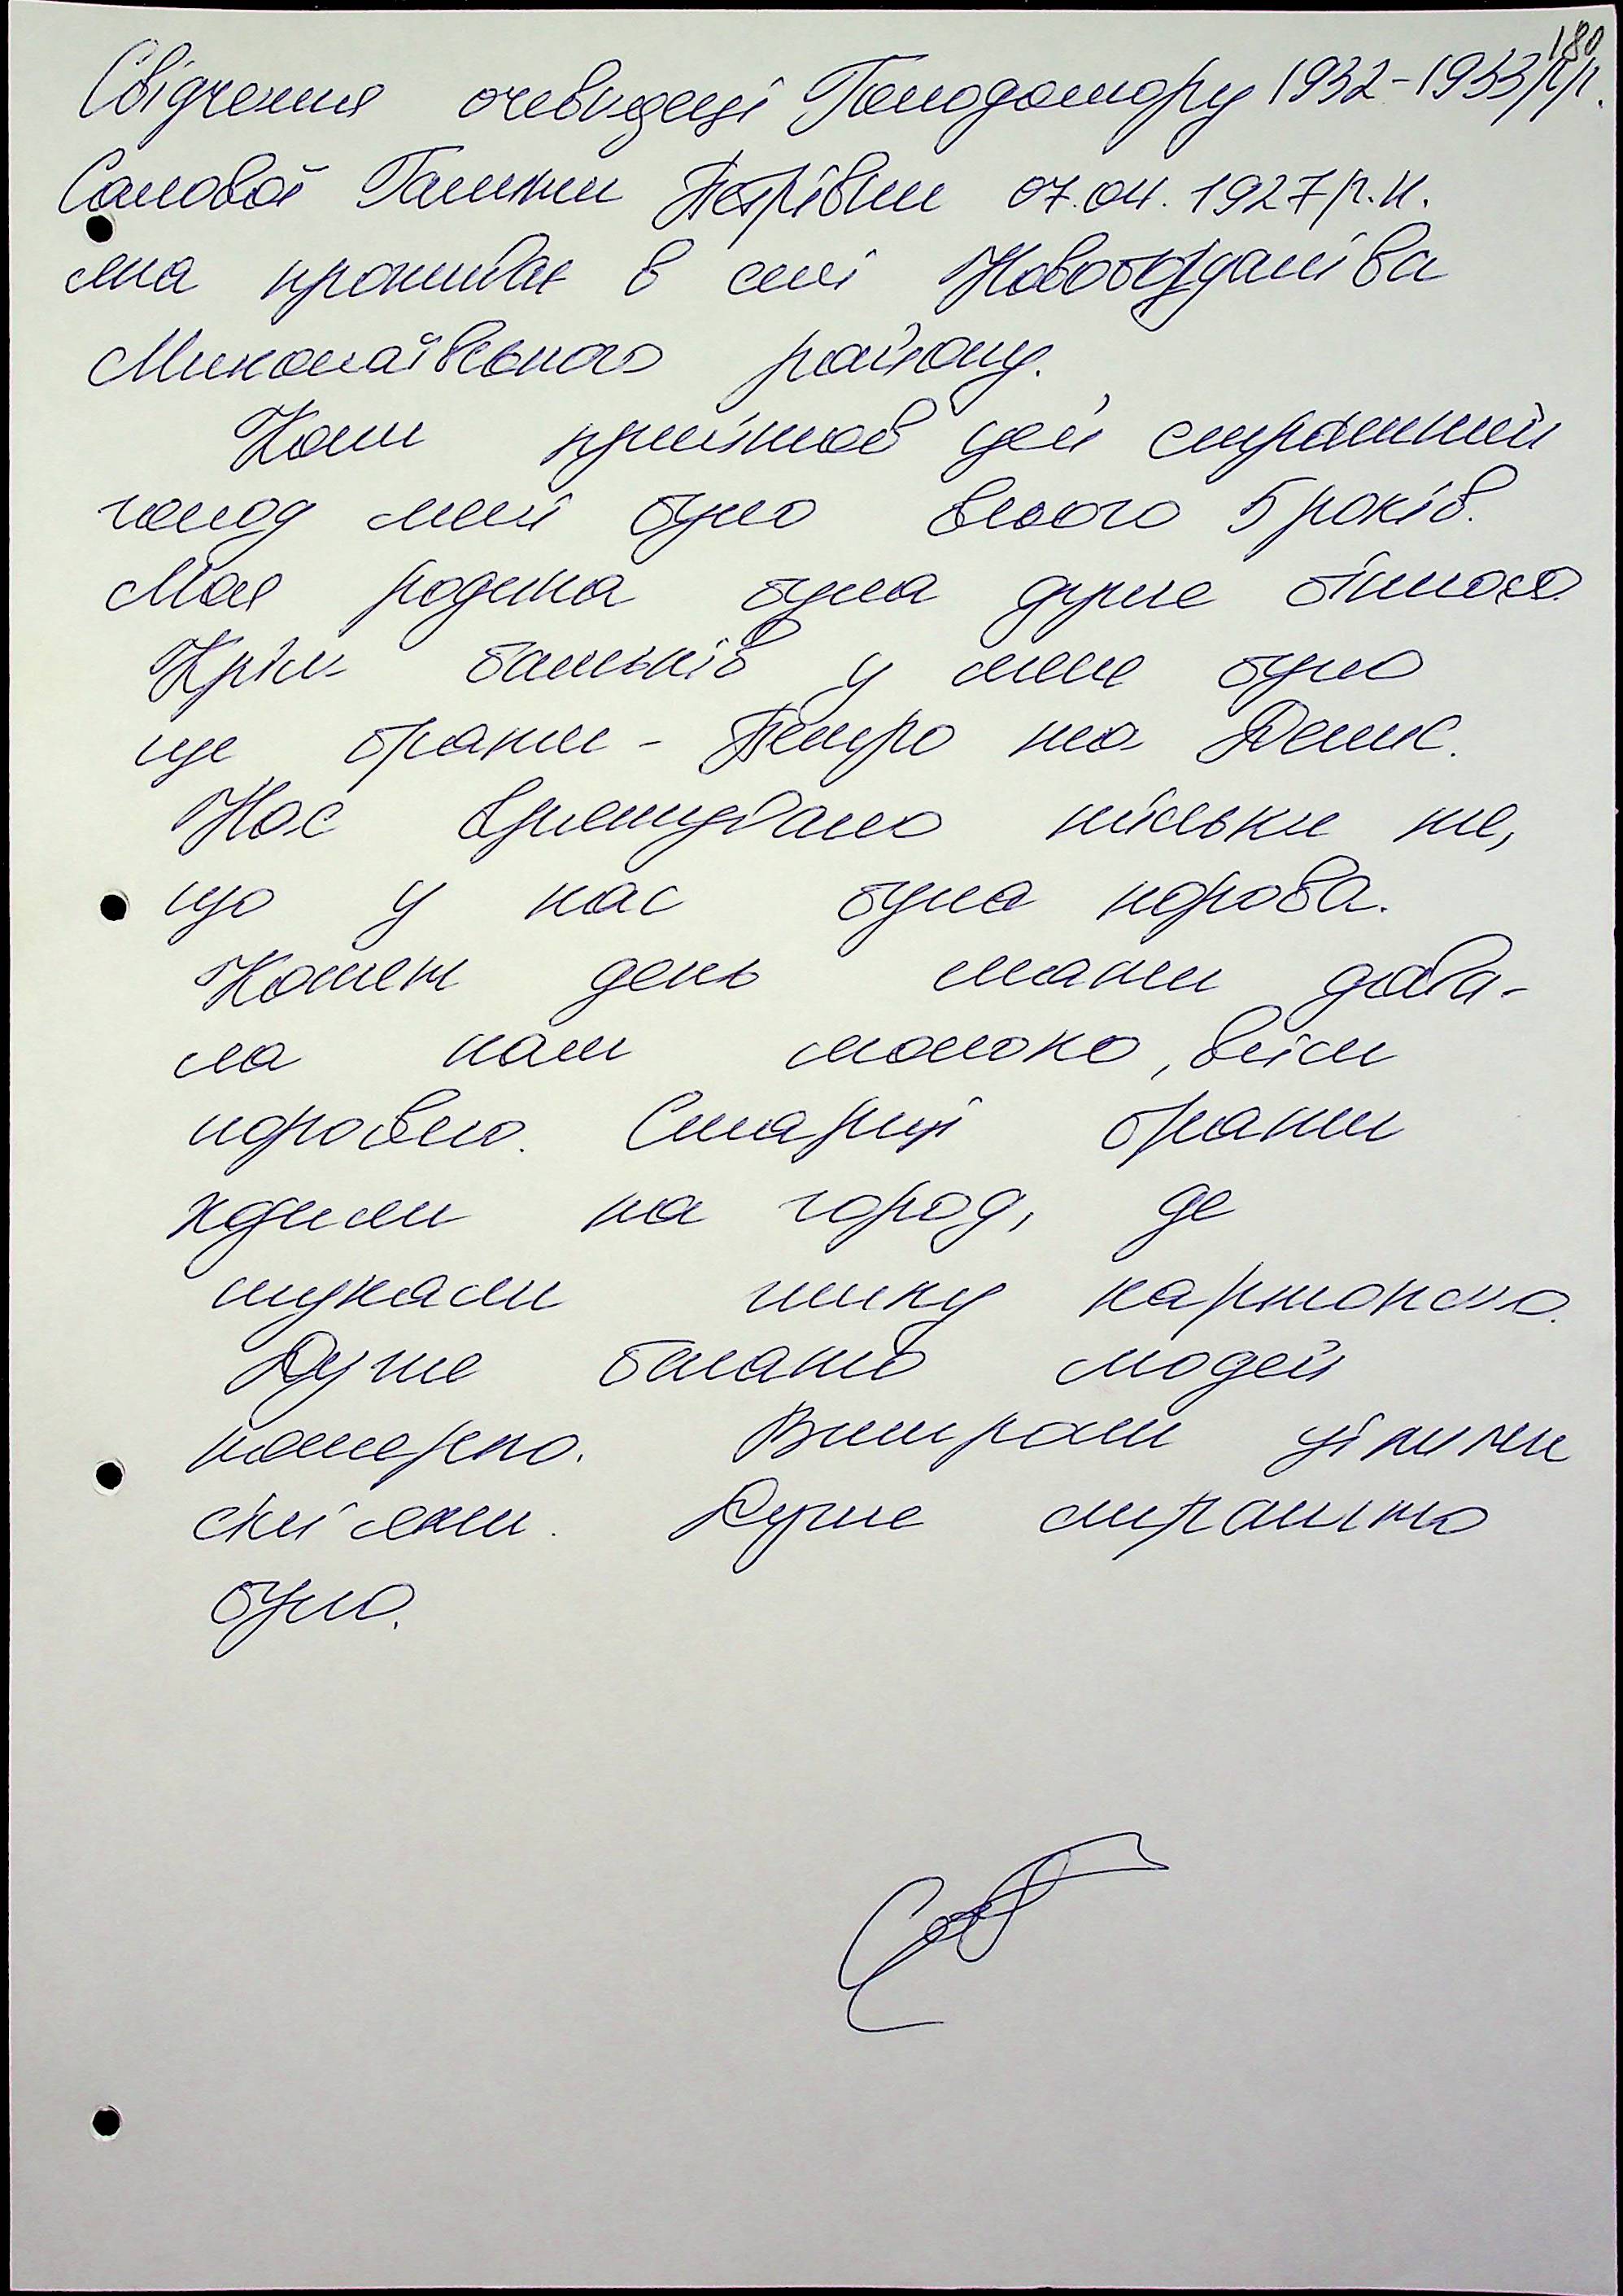 180
Свідчення очевидеці Голодомору 1932-1933 р.р.
Салової Галини Петрівни 07.04.1927 р.н.
яка проживає в селі Новобогданівка
Миколаївського району.
Коли прийшов цей страшний
голод мені було всього 5 років.
Моя родина була дуже бідною.
Крім батьків у мене було
ще брати - Петро та Денис.
Нас врятувало тільки те,
що у нас була корова.
Кожен день мати дава-
ла нам молоко, всім
порівно. Старші брати
ходили на город, де
шукали гнилу картоплю.
Дуже багато людей
померло. Вмирали цілими
сім'ями. Дуже страшно
було.